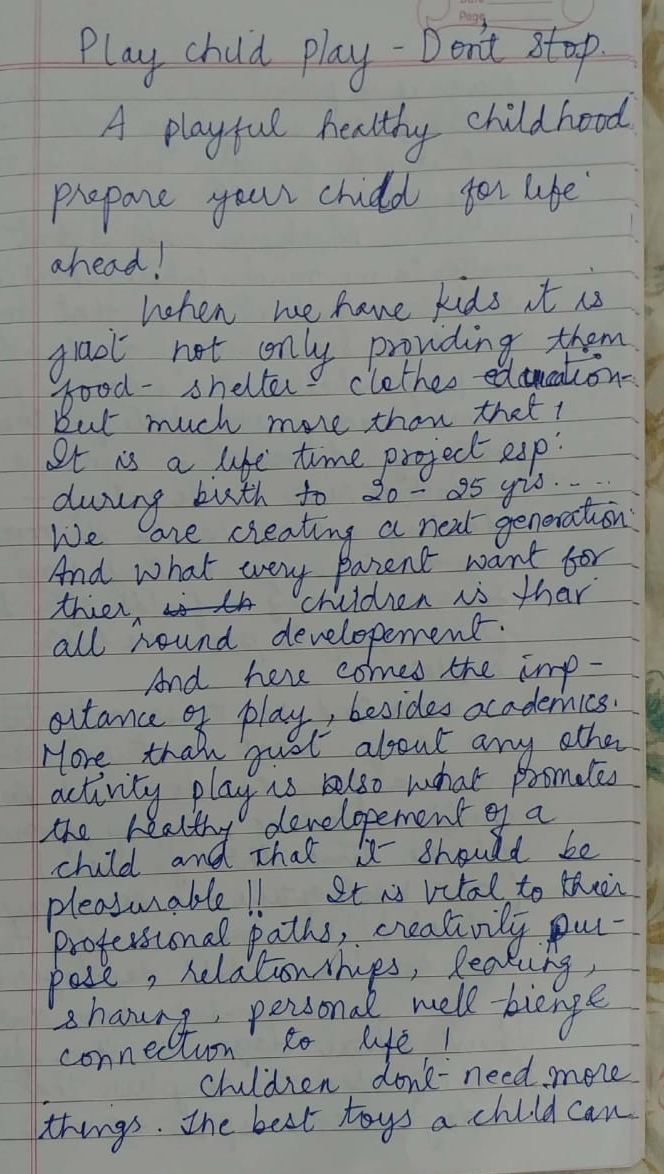 Page
Play child play - Don't stop.
A playful healthy childhood
prepare your child for life
ahead!
When we have kids it is
just not only providing them
food - shelter - clothes education -
but much more than that!
It is a life time project esp.
during birth to 20 - 25 yrs.....
We are creating a next generation
And what every parent want for
thier children is thar
all round developement.
And here comes the imp-
ortance of play, besides academics.
More than just about any other
activity play is also what promotes
the healthy developement of a
child and that it should be
pleasurable!! It is vital to thier
professional paths, creativity pur-
pose, relationships, learing,
sharing, personal well-bienge
connection to life!
Children don't need more
things. The best toys a child can